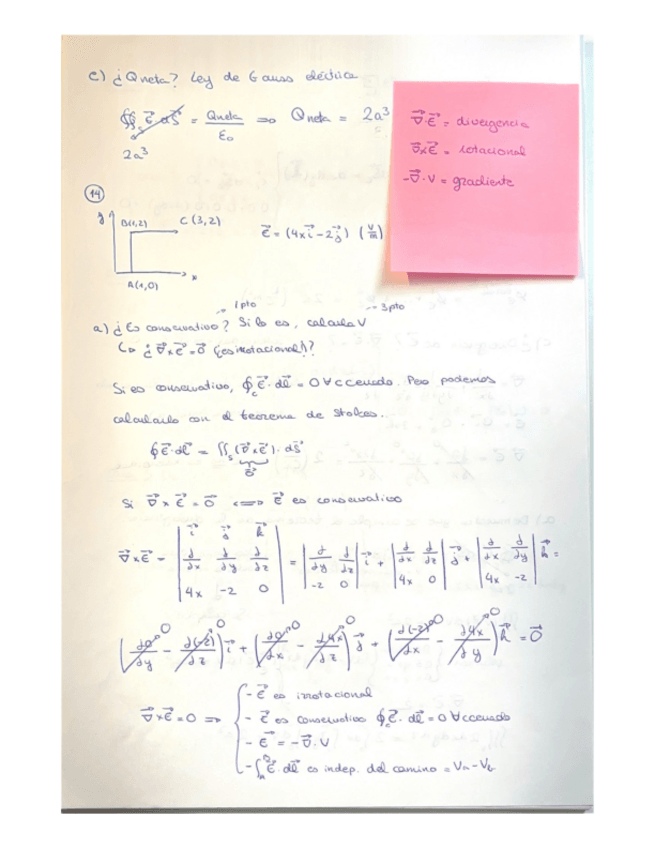 c) ¿Qneta? Ley de Gauss eléctrica
∯ₛ E⃗·dS⃗ = Qneta/ε₀ ⇒ Qneta = 2a³
2a³
∇⃗·E⃗ = divergencia
∇⃗×E⃗ = rotacional
-∇⃗·V = gradiente
14
y B(1,2) C(3,2)
E⃗ = (4x i⃗ - 2 j⃗) (V/m)
x
A(1,0)
→ 1 pto → 3 pto
a) ¿Es conservativo? Si lo es, calcula V
↳ ¿∇⃗×E⃗ = 0⃗ (es irrotacional)?
Si es conservativo, ∮_c E⃗·dl⃗ = 0 ∀ c cerrado. Pero podemos
calcularlo con el teorema de Stokes.
∮ E⃗·dl⃗ = ∬ₛ (∇⃗×E⃗)·dS⃗
0⃗
Si ∇⃗×E⃗ = 0⃗ ⟺ E⃗ es conservativo
∇⃗×E⃗ = | i⃗ j⃗ k⃗ ; d/dx d/dy d/dz ; 4x -2 0 | = | d/dy d/dz ; -2 0 | i⃗ + | d/dx d/dz ; 4x 0 | j⃗ + | d/dx d/dy ; 4x -2 | k⃗ =
(d0/dy →0 - d(-2)/dz →0) i⃗ + (d0/dx →0 - d4x/dz →0) j⃗ + (d(-2)/dx →0 - d4x/dy →0) k⃗ = 0⃗
∇⃗×E⃗ = 0 ⇒
- E⃗ es irrotacional
- E⃗ es conservativo ∮_c E⃗·dl⃗ = 0 ∀ c cerrado
- E⃗ = -∇⃗·V
- ∫ E⃗·dl⃗ es indep. del camino = Va - Vb